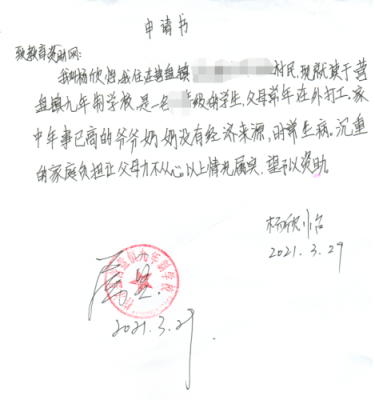 申请书
致教育资助网：
我叫杨欣怡，我住在营盘镇 村民，现就读于营
盘镇九年制学校，是一名 级的学生，父母常年在外打工。家
中年事已高的爷爷奶奶没有经济来源，时常生病。沉重
的家庭负担让父母力不从心以上情况属实，望予以资助。
杨欣怡
2021.3.29
属实
2021.3.29